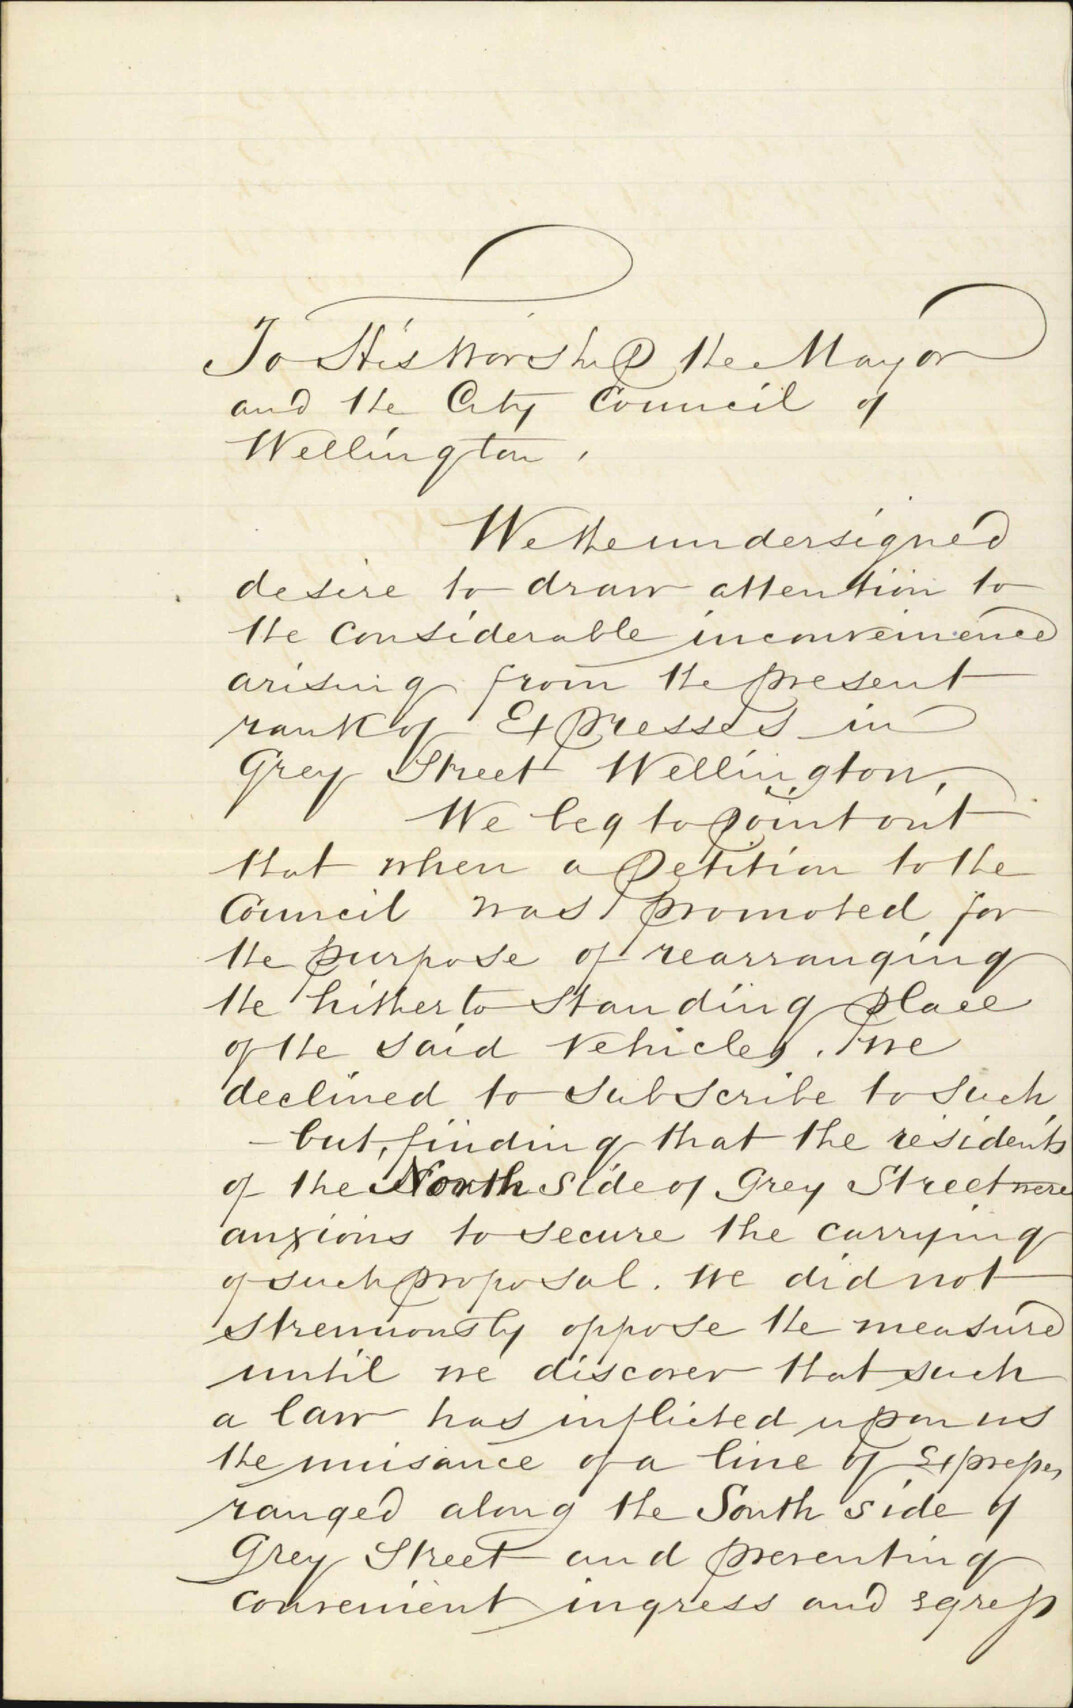 To His Worship the Mayor
and the City Council of
Wellington,
We the undersigned
desire to draw attention to
the considerable inconveinence
arising from the present
rank of Expresses in
Grey Street Wellington,
We beg to point out
that when a petition to the
Council was promoted for
the purpose of rearranging
the hitherto standing place
of the said vehicles. We
declined to subscribe to such
- but, finding that the residents
of the North side of Grey Street were
anxious to secure the carrying
of such proposal. We did not
strenuously oppose the measure
until we discover that such
a law has inflicted upon us
the nuisance of a line of Expresses
ranged along the South side of
Grey Street and preventing
convenient ingress and egress